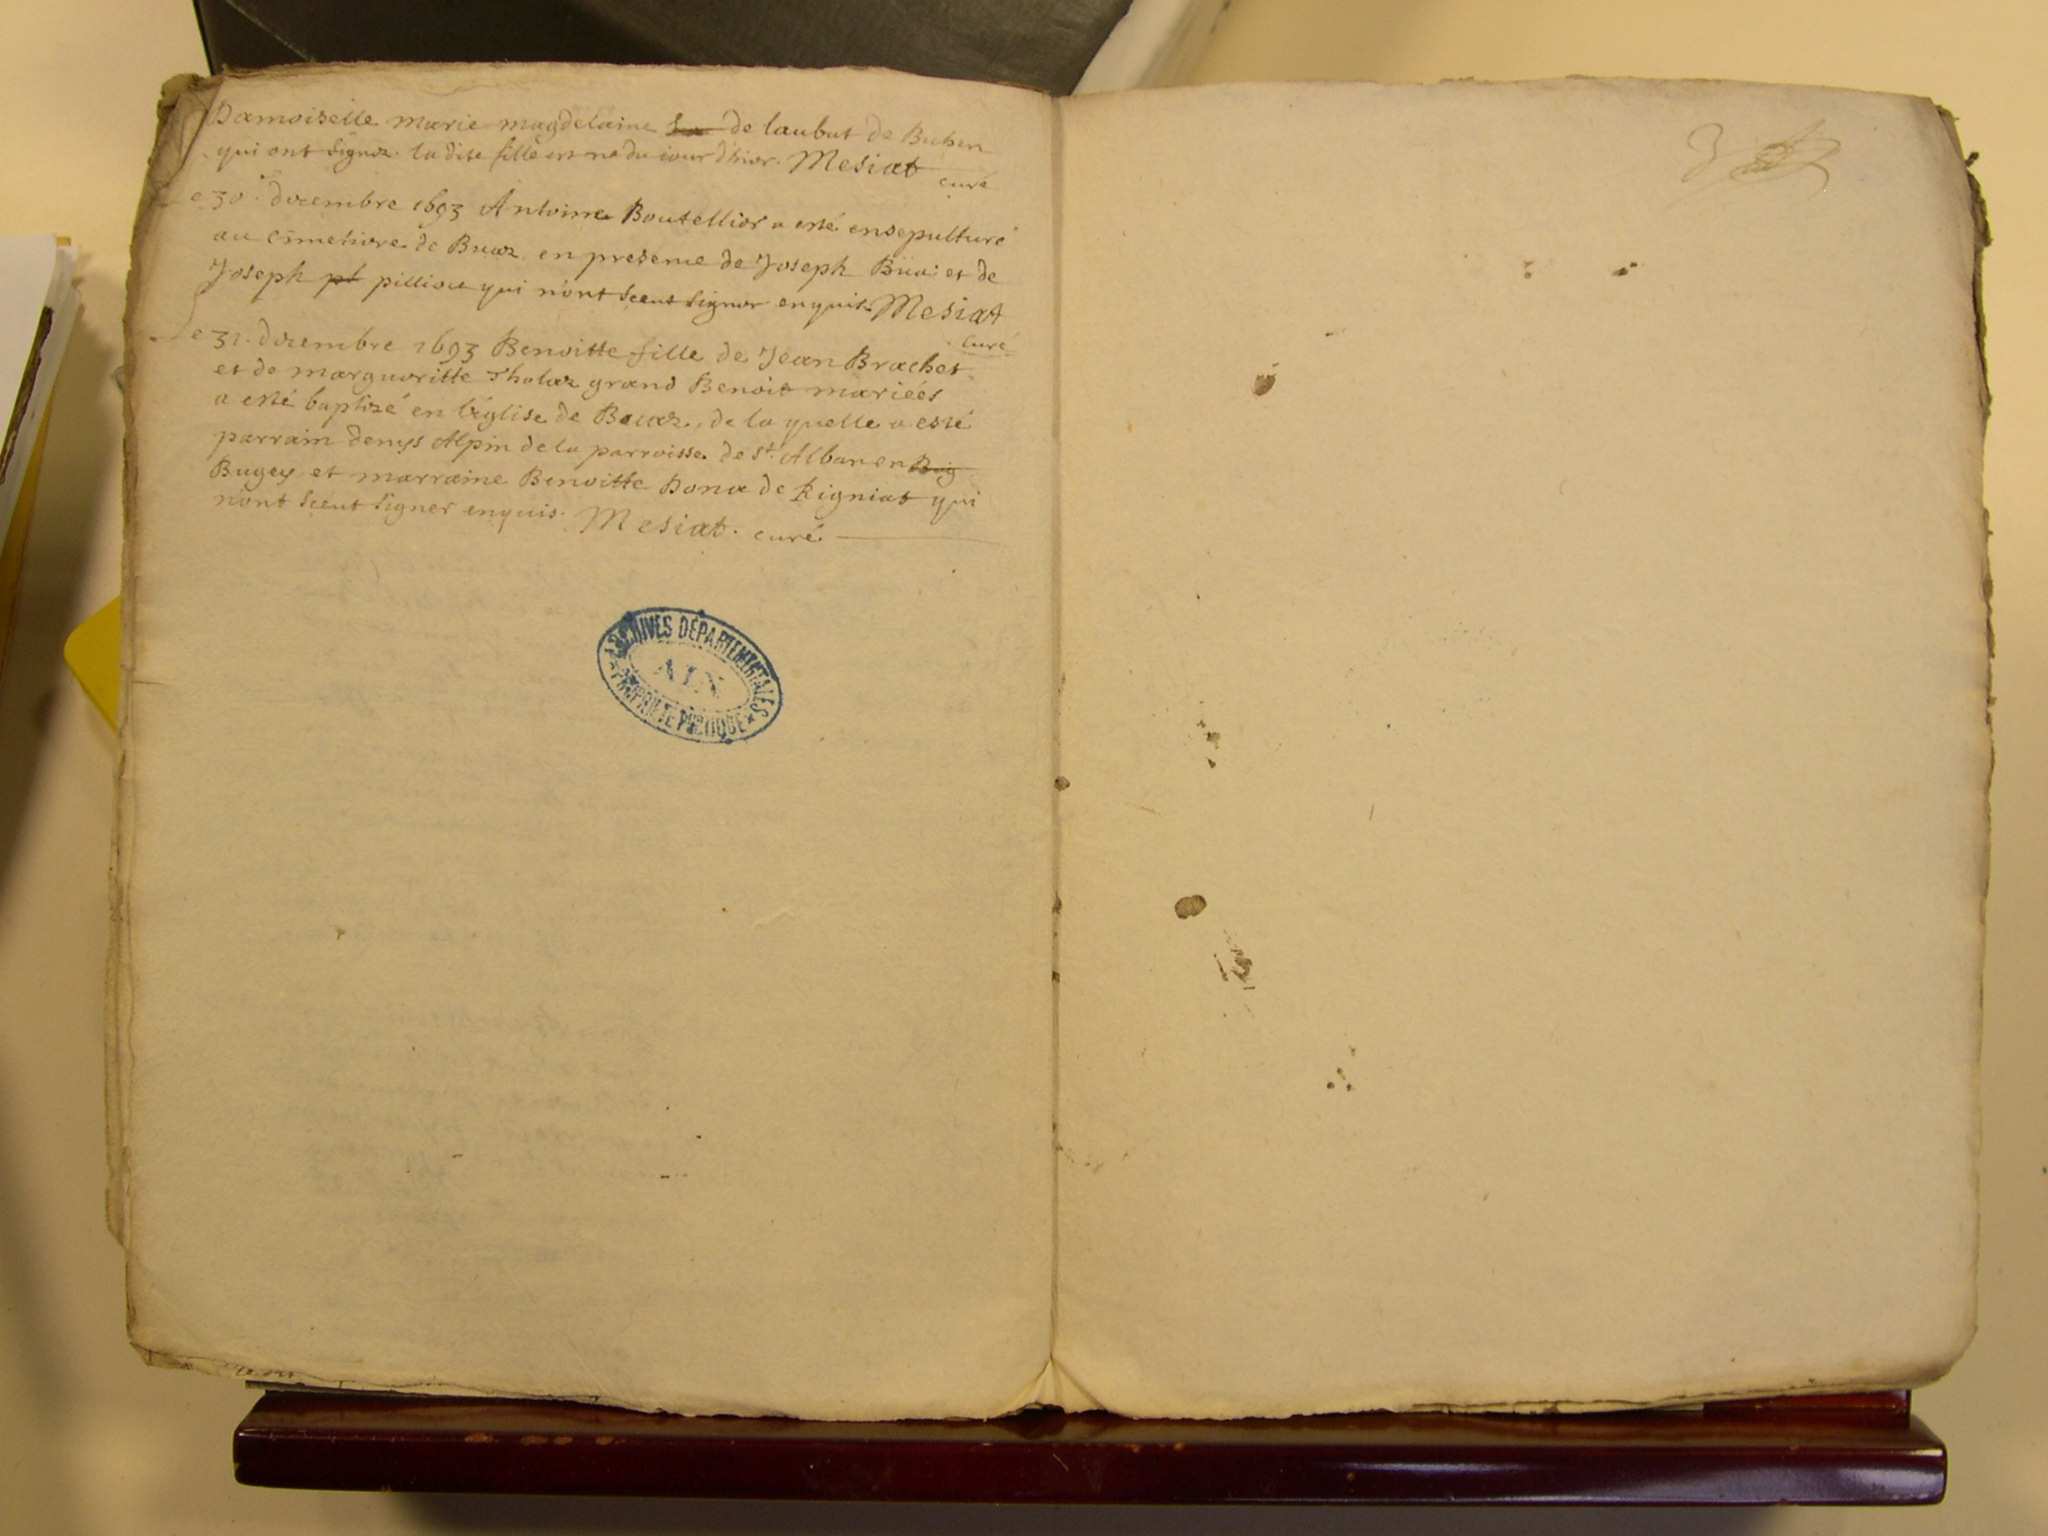 Damoiselle marie magdelaine de laubut de Buhen
qui ont signez. la dite fille est ne du jour dhier. Mesiat
curé
Le 30. decembre 1693 Antoine Boutellier a esté ensepulturé
au cimetiere de Buaz en presence de Joseph Büa: et de
Joseph pilliou qui n'ont sceut signer enquit Mesiat
Curé
Le 31. decembre 1693 Benoitte fille de Jean Brachet
et de marguoritte Tholaz grand Benoit mariées
a esté baptizé en l'église de Bouaz, de la quelle a esté
parrain denys Alpin de la parroisse de St. Alban en Bug
Bugey et marraine Benoitte Dona de Rigniat qui
n'ont sceut signer enquis. Mesiat. curé
ARCHIVES DÉPARTEMENTALES
AIN
PROPRIÉTÉ PUBLIQUE
3